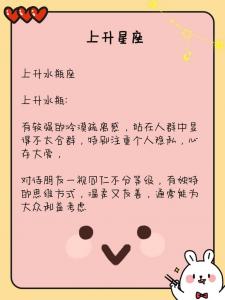 上升星座
上升水瓶座
上升水瓶:
有较强的冷漠疏离感，站在人群中显
得不太合群，特别注重个人隐私，心
存大爱，
对待朋友一视同仁不分等级，有独特
的思维方式，温柔又友善，通常能为
大众利益考虑